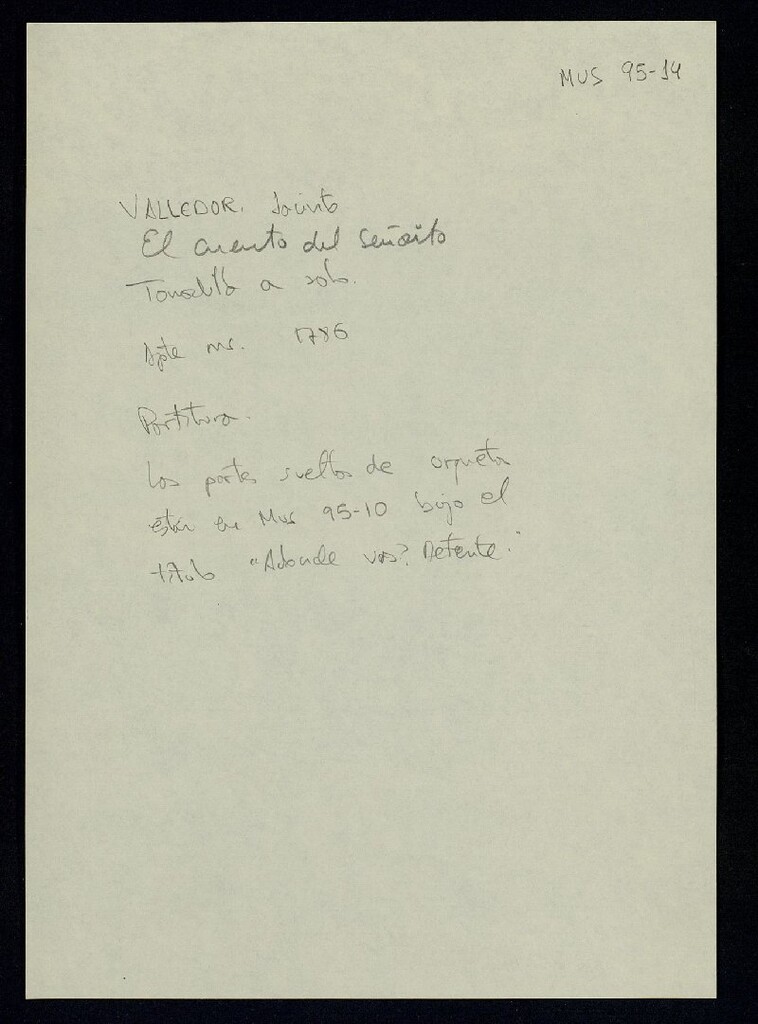 MUS 95-14
VALLEDOR, Jacinto
El cuento del señorito
Tonadilla a solo.
Apte ms. 1786
Partitura.
Las partes sueltas de orquesta
están en Mus 95-10 bajo el
título "Adonde vas? Detente."